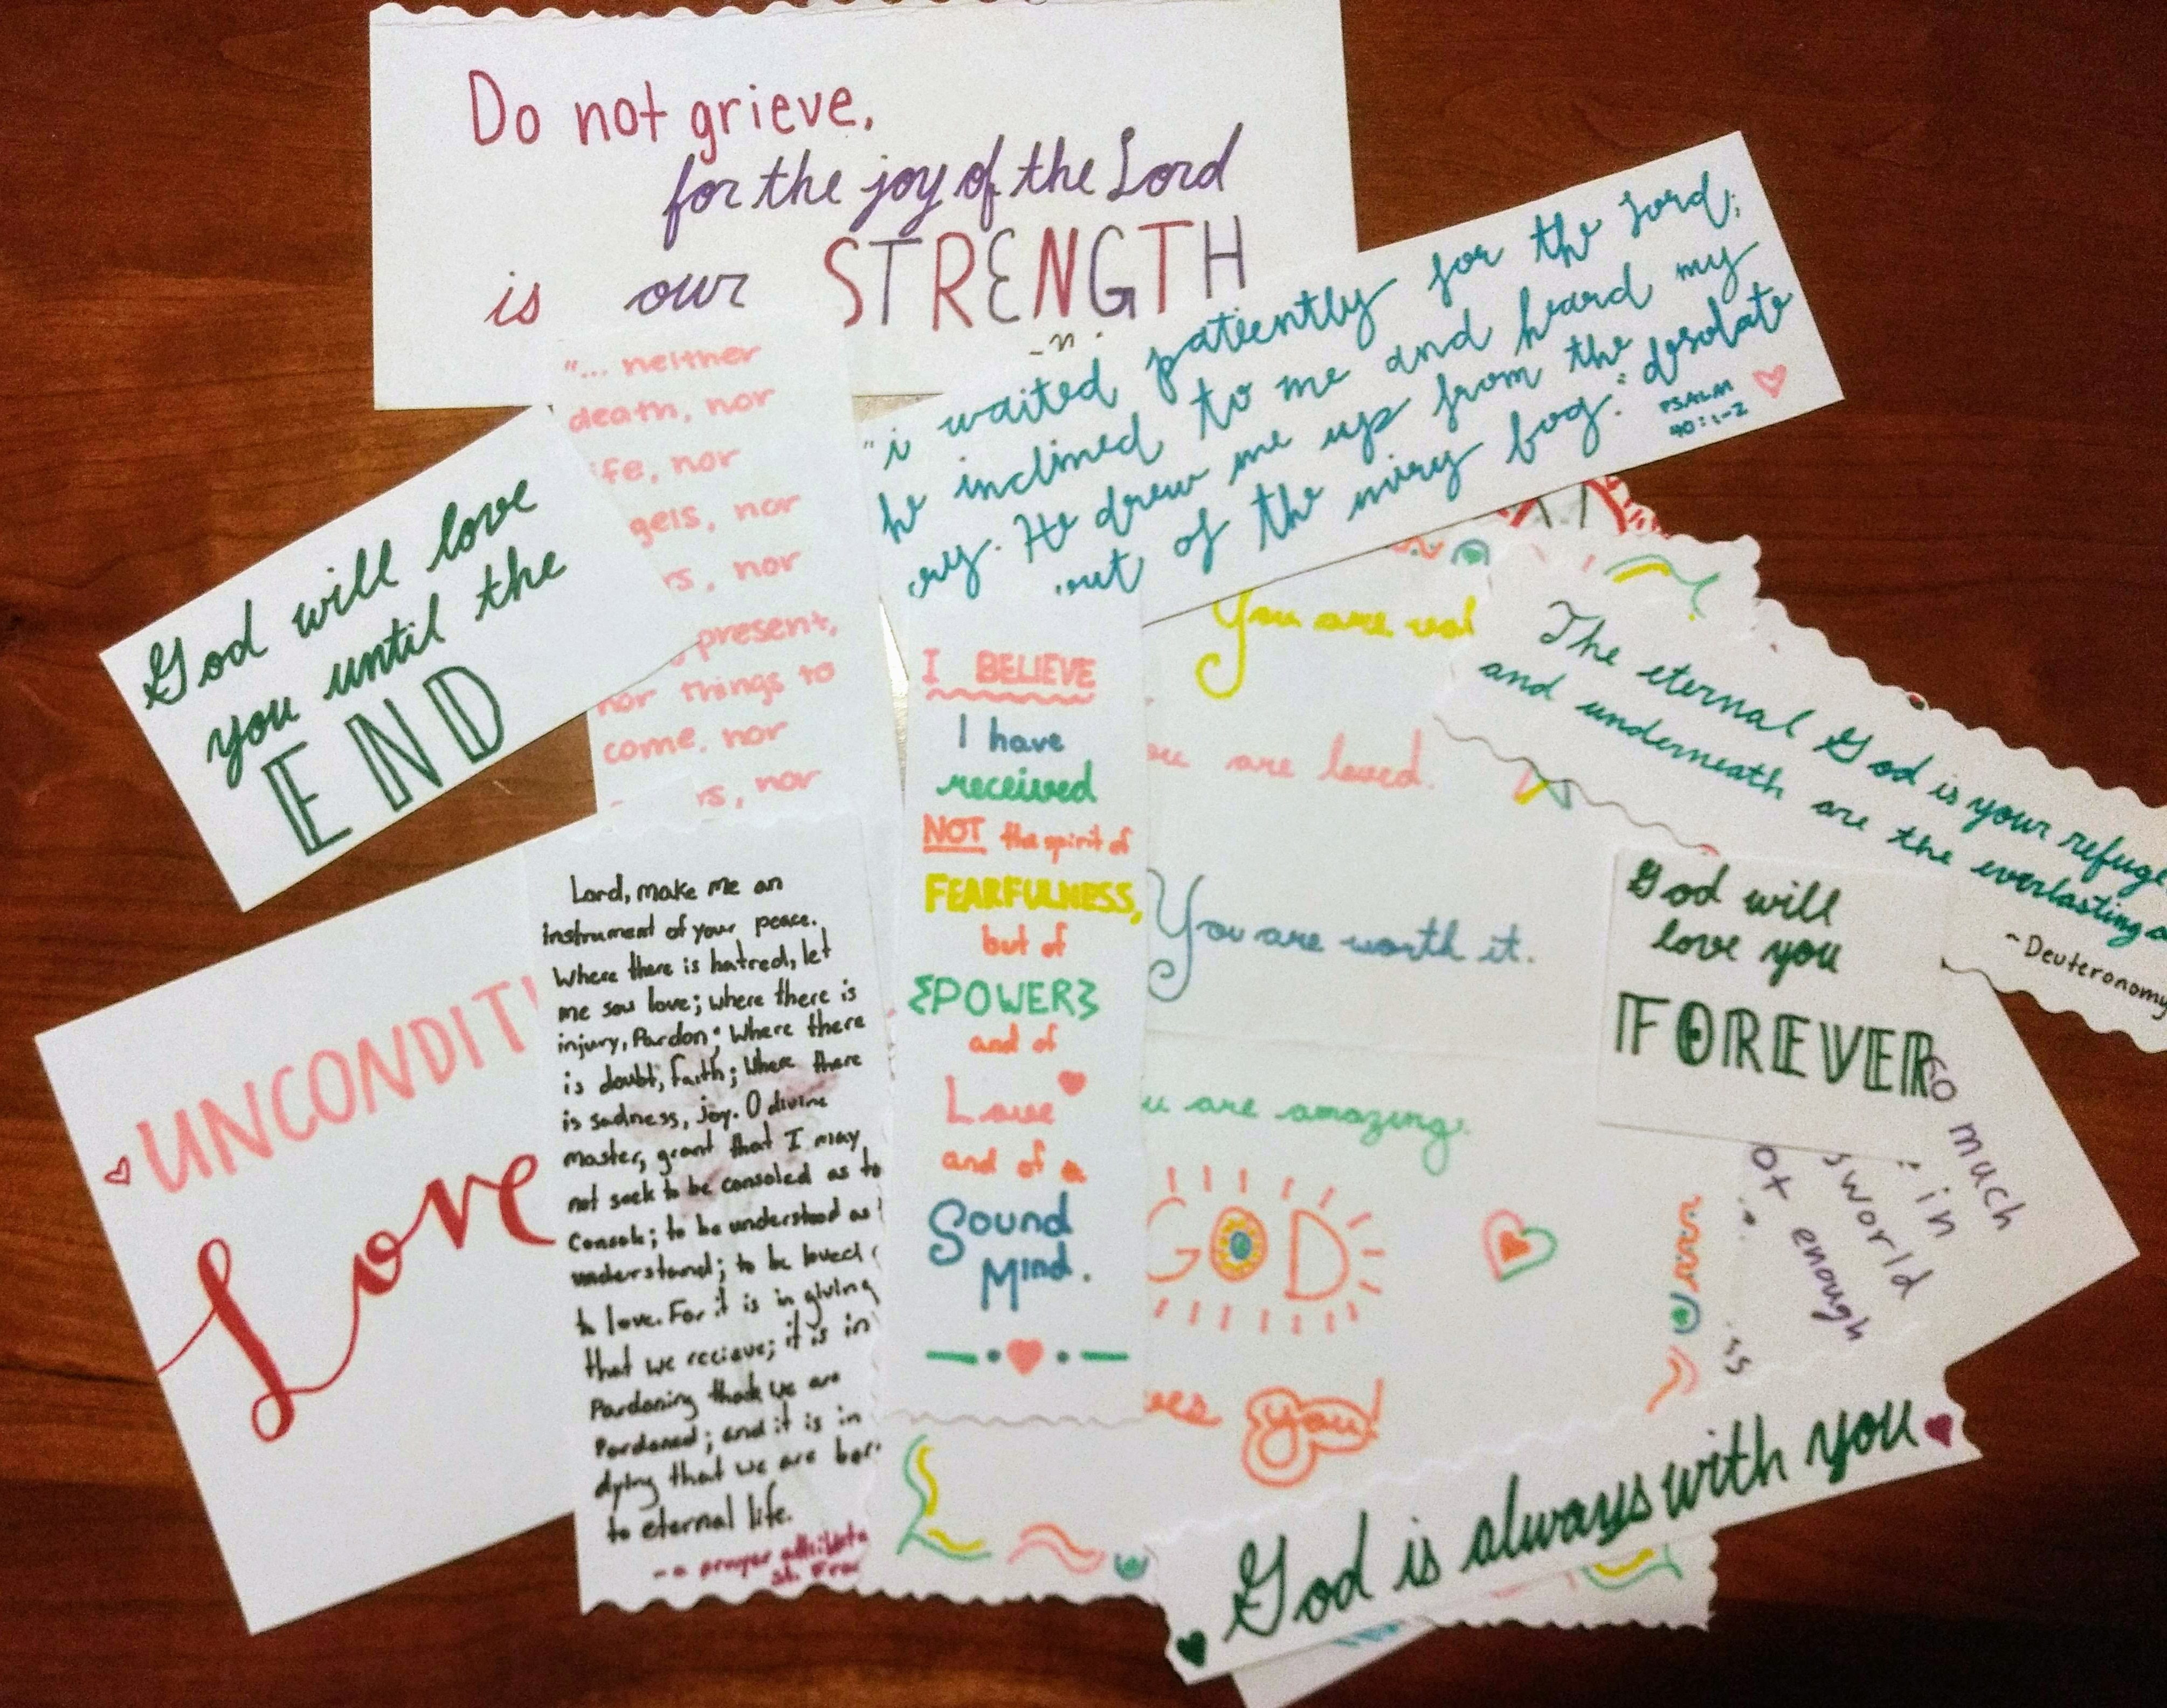 Do not grieve,
for the joy of the Lord
is our STRENGTH
"i waited patiently for the Lord;
he inclined to me and heard my
cry. He drew me up from the desolate
out of the miry bog."
PSALM
40:1-2
"... neither
death, nor
ife, nor
gels, nor
rs, nor
present,
nor things to
come, nor
rs, nor
God will love
you until the
END
UNCONDITI
Love
Lord, make me an
instrument of your peace.
Where there is hatred, let
me sow love; where there is
injury, Pardon; Where there
is doubt, faith; Where there
is sadness, joy. O divine
master, grant that I may
not seek to be consoled as to
Console; to be understood as
understand; to be loved
to love. For it is in giving
that we recieve; it is in
Pardoning that we are
Pardoned; and it is in
dying that we are bor
to eternal life.
-a prayer attributed
St. Fran
I BELIEVE
I have
received
NOT the spirit of
FEARFULNESS,
but of
{POWER}
and of
Love
and of a
Sound
Mind.
You are val
ou are loved.
You are worth it.
u are amazing.
GOD
ves you!
The eternal God is your refuge
and underneath are the everlasting a
~Deuteronomy
God will
love you
FOREVER
so much
in
sworld
ot enough
is
God is always with you